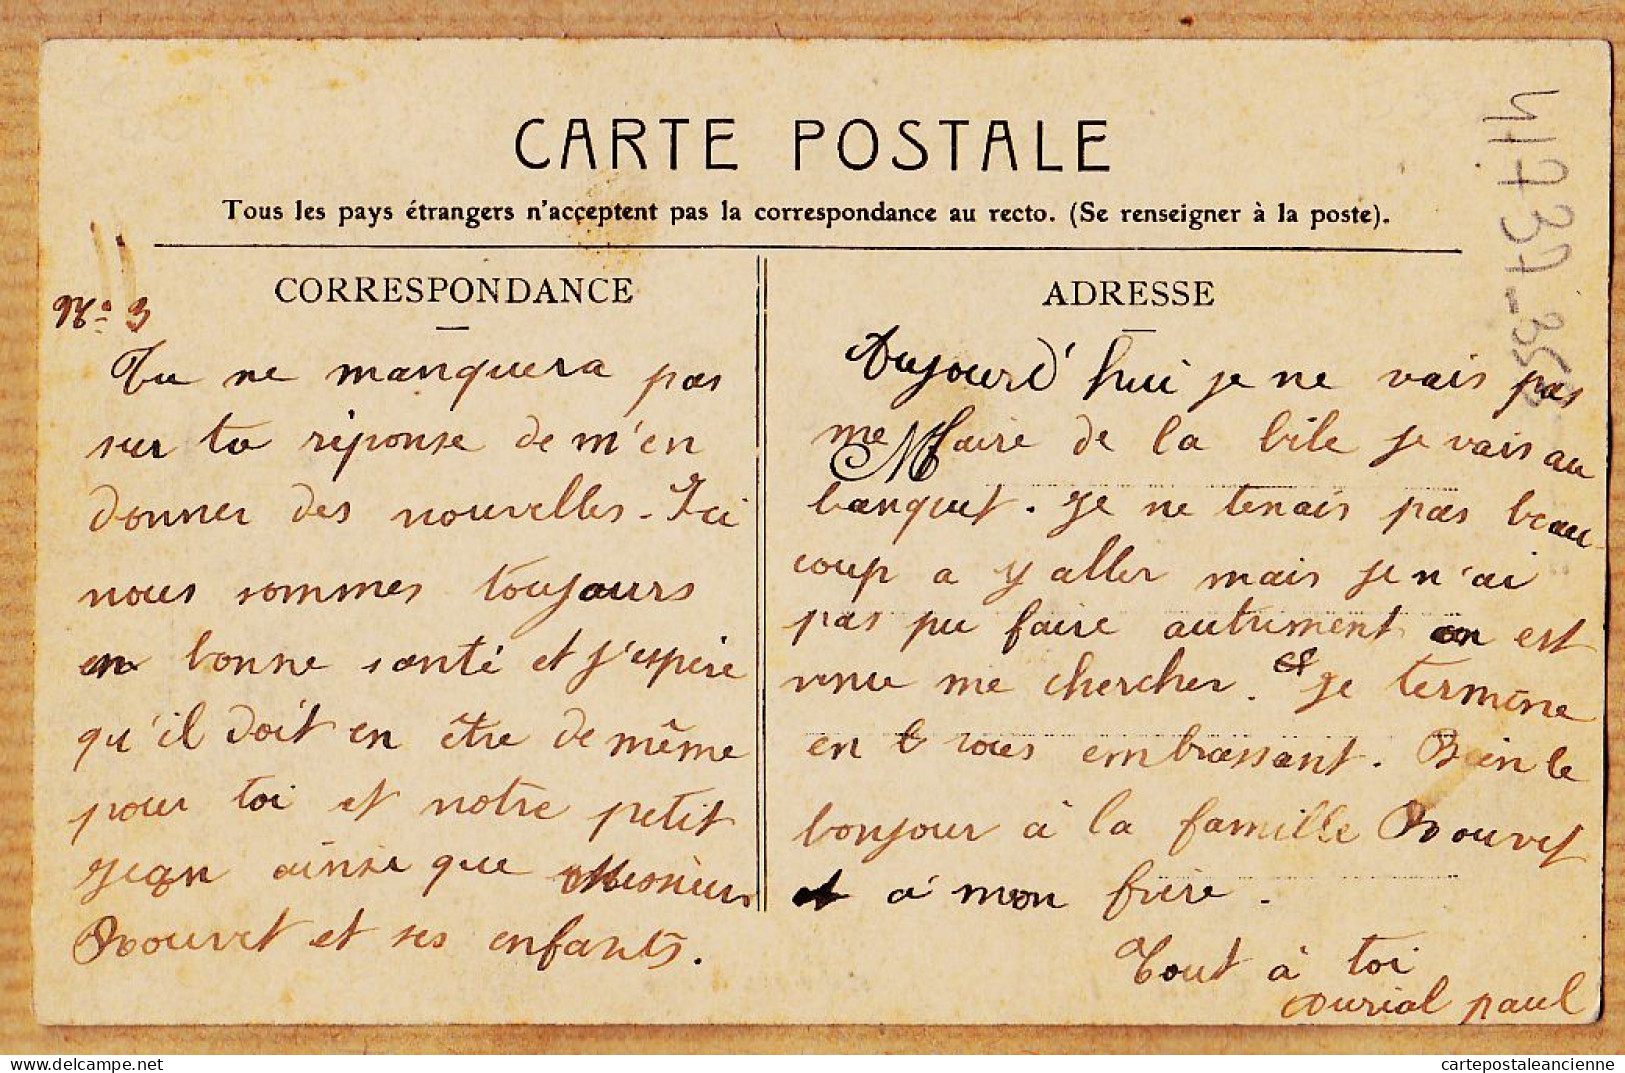 CARTE POSTALE
Tous les pays étrangers n'acceptent pas la correspondance au recto. (Se renseigner à la poste).
CORRESPONDANCE
N° 3
Tu ne manquera pas
sur ta réponse de m'en
donner des nouvelles - Ici
nous sommes toujours
en bonne santé et j'espère
qu'il doit en être de même
pour toi et notre petit
jean ainsie que Mesieurs
Bouvet et ses enfants.
ADRESSE
Aujourd'hui je ne vais pas
me faire de la bile je vais au
banquet. je ne tenais pas beau-
coup a y aller mais je n'ai
pas pu faire autrument on est
venu me chercher. je termine
en vous embrassant. Bien le
bonjour à la famille Bouvet
et a mon frère.
Tout à toi
Courial paul
41737-35
cartepostaleancienne
delcampe.net